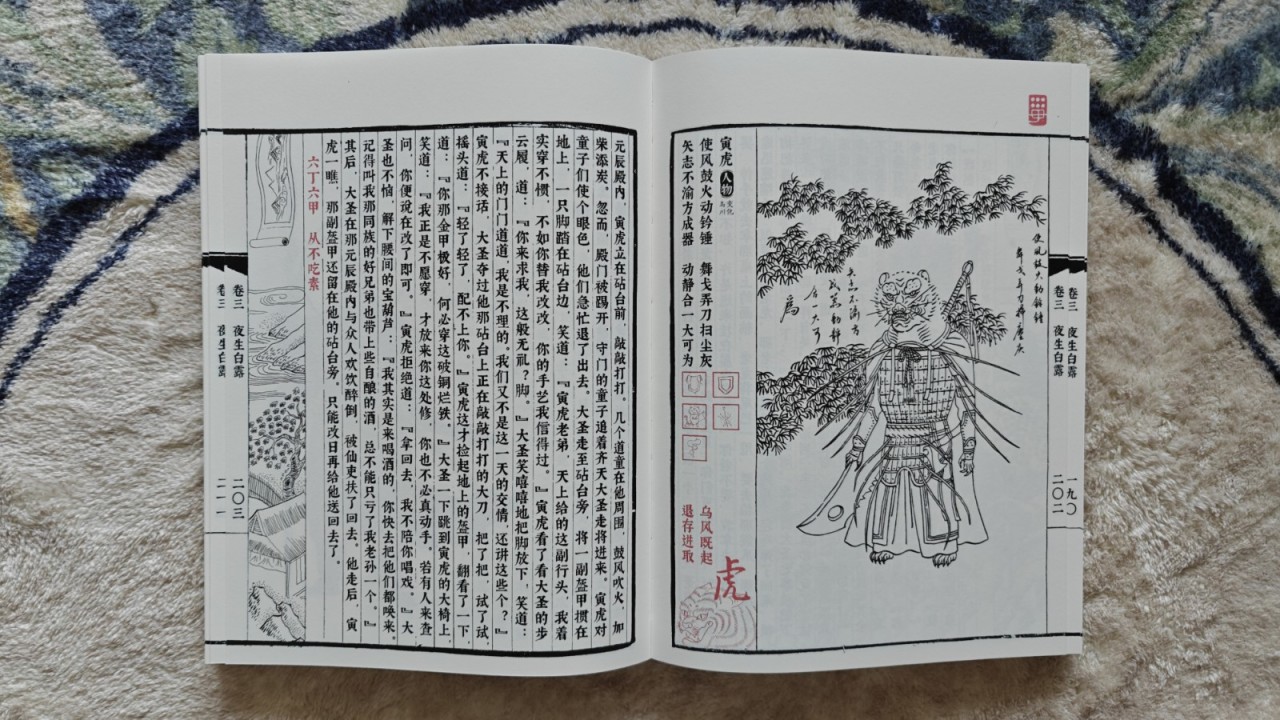 卷三 夜生白露 一九〇
卷三 夜生白露 二〇二
使风鼓火动钤锤
寅虎 人物
使风鼓火动钤锤 舞戈弄刀扫尘灰
矢志不渝方成器 动静合一大可为
乌风既起
退存进取
虎
元辰殿内，寅虎立在砧台前，敲敲打打。几个道童在他周围，鼓风吹火，加
柴添炭。忽而，殿门被踢开，守门的童子追着齐天大圣走将进来。寅虎对
童子们使个眼色，他们急忙退了出去。大圣走至砧台旁，将一副盔甲掼在
地上，一只脚踏在砧台边，笑道：『寅虎老弟，天上给的这副行头，我着
实穿不惯，不如你替我改改，你的手艺我信得过。』寅虎看了看大圣的步
云履，道：『你来求我，这般无礼？脚。』大圣笑嘻嘻地把脚放下，笑道：
『天上的门门道道，我是不理的。我们又不是这一天的交情，还讲这些个？』
寅虎不接话，大圣夺过他那砧台上正在敲敲打打的大刀，把了把，试了试，
摇头道：『轻了轻了，配不上你。』寅虎这才捡起地上的盔甲，翻看了一下，
道：『你那金甲极好，何必穿这破铜烂铁。』大圣一下跳到寅虎的大椅上，
笑道：『我正是不愿穿，才放来你这处修，你也不必真动手。若有人来查
问，你便说在改了即可。』寅虎拒绝道：『拿回去，我不陪你唱戏。』大
圣也不恼，解下腰间的宝葫芦：『我其实是来喝酒的，你快去把他们都唤来。
记得叫我那同族的好兄弟也带上些自酿的酒，总不能只亏了我老孙一个。』
其后，大圣在那元辰殿内与众人欢饮醉倒，被仙吏扶了回去。他走后，寅
虎一瞧，那副盔甲还留在他的砧台旁。只能改日再给他送回去了。
六丁六甲 从不吃素
卷三 夜生白露 二〇三
卷三 夜生白露 二一一